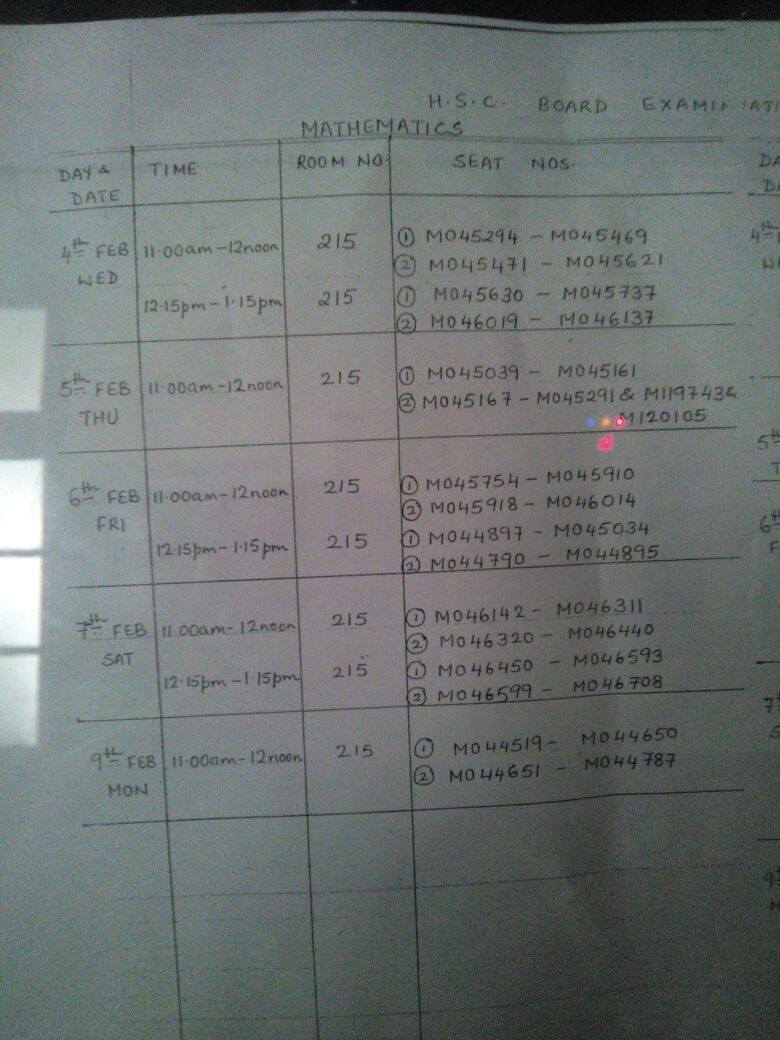 H.S.C. BOARD
MATHEMATICS
DAY & DATE TIME ROOM NO. SEAT NOS.
4th FEB WED 11.00am-12noon 215 ① M045294 - M045469
② M045471 - M045621
12.15pm-1.15pm 215 ① M045630 - M045737
② M046019 - M046137
5th FEB THU 11.00am-12noon 215 ① M045039 - M045161
② M045167 - M045291 & M119743 &
M120105
6th FEB FRI 11.00am-12noon 215 ① M045754 - M045910
② M045918 - M046014
12.15pm-1.15pm 215 ① M044897 - M045034
② M044790 - M044895
7th FEB SAT 11.00am-12noon 215 ① M046142 - M046311
② M046320 - M046440
12.15pm-1.15pm 215 ① M046450 - M046593
② M046599 - M046708
9th FEB MON 11.00am-12noon 215 ① M044519 - M044650
② M044651 - M044787